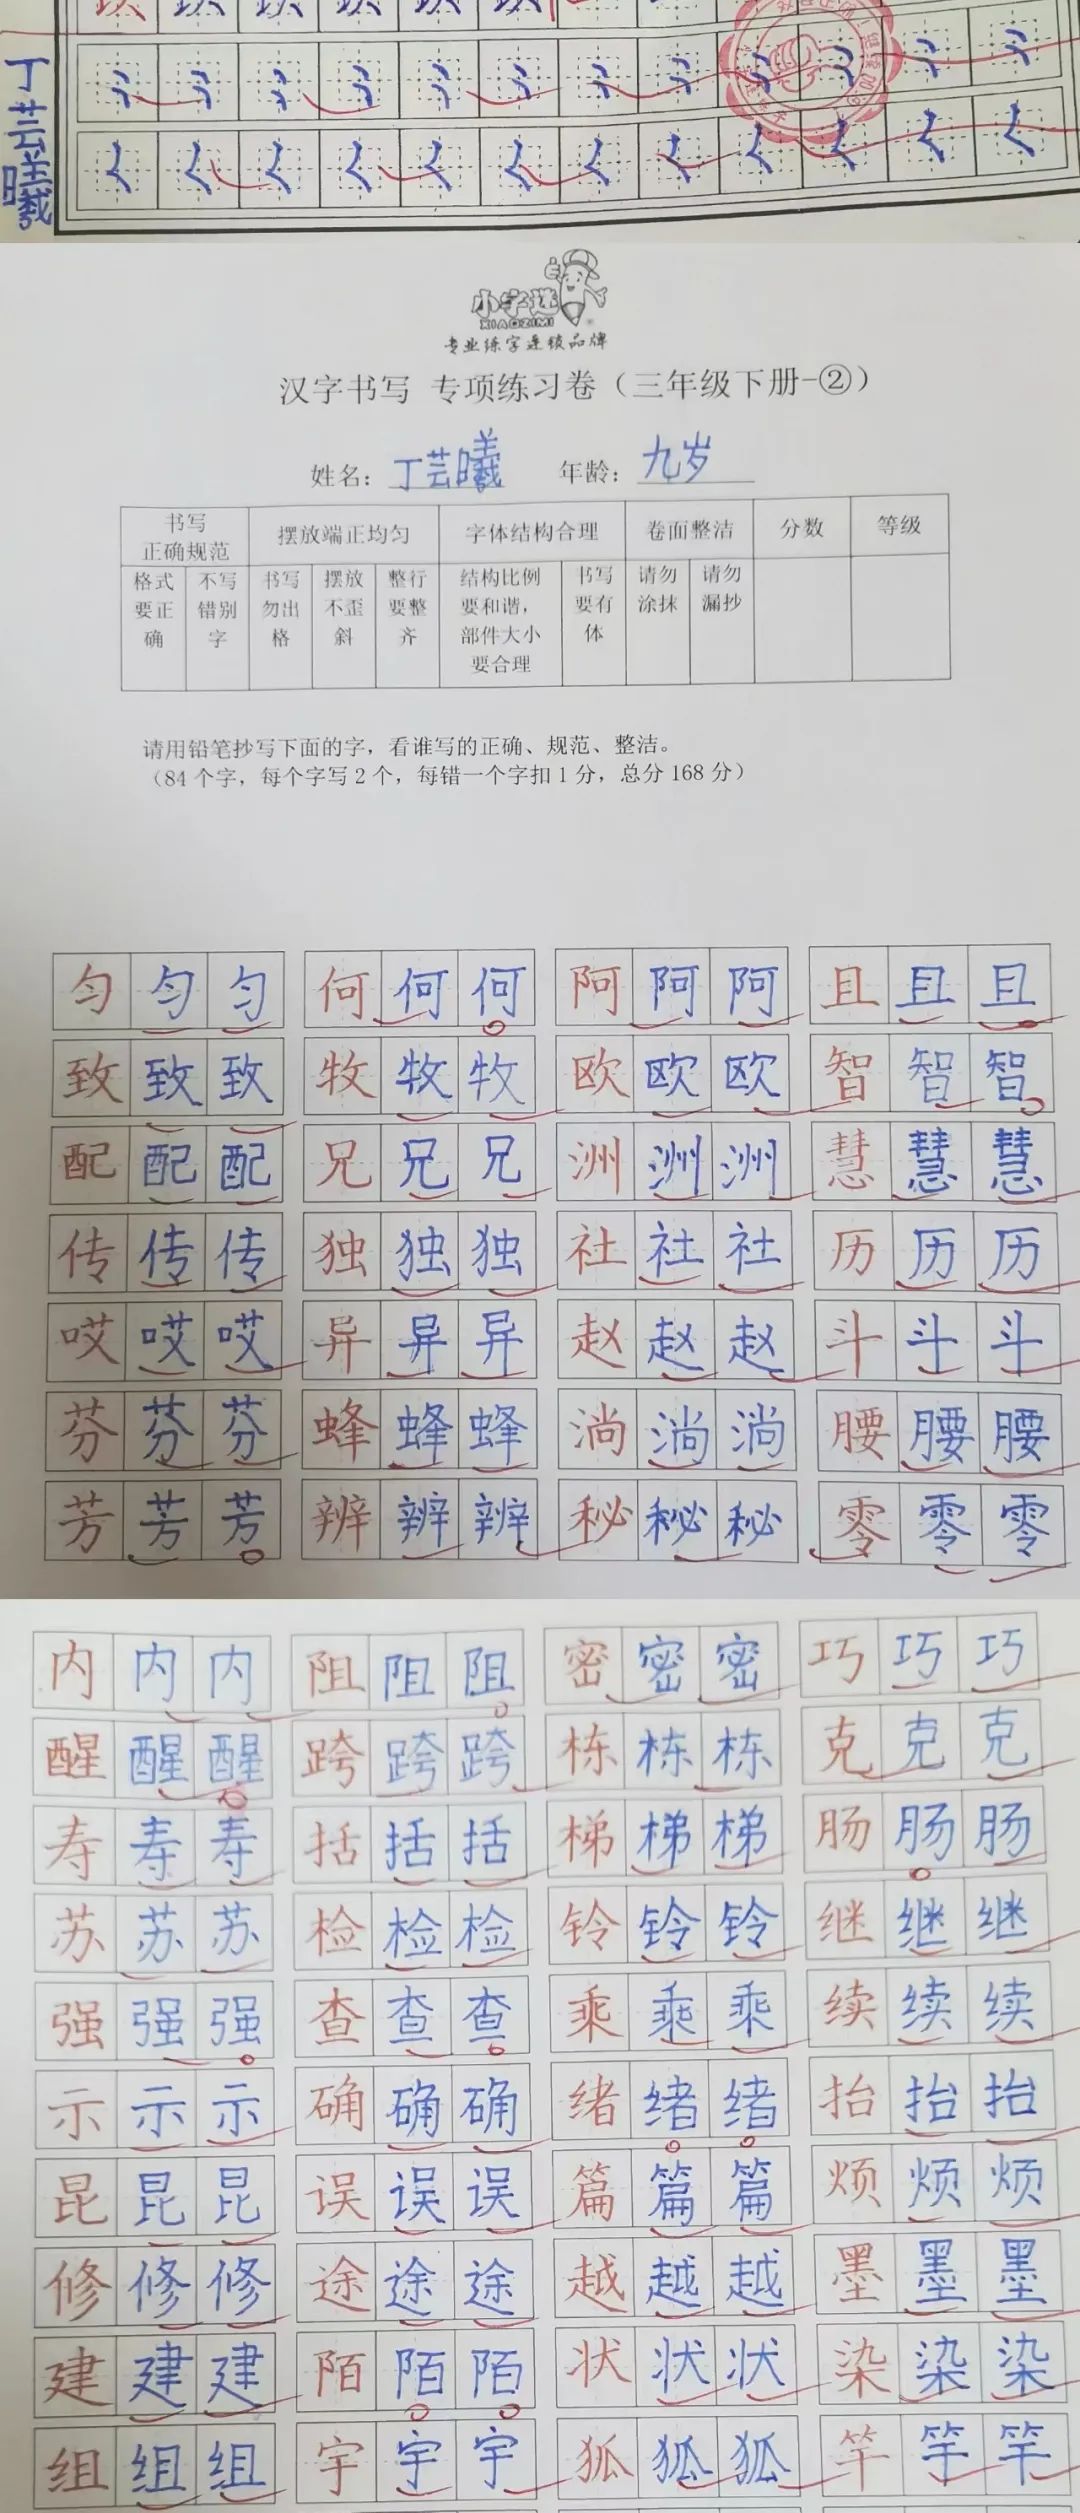 丁芸曦
小字迷
XIAOZIMI
专业练字连锁品牌
汉字书写 专项练习卷（三年级下册-②）
姓名：丁芸曦 年龄：九岁
书写正确规范 摆放端正均匀 字体结构合理 卷面整洁 分数 等级
格式要正确 不写错别字 书写勿出格 摆放不歪斜 整行要整齐 结构比例要和谐，部件大小要合理 书写要有体 请勿涂抹 请勿漏抄
请用铅笔抄写下面的字，看谁写的正确、规范、整洁。
（84个字，每个字写2个，每错一个字扣1分，总分168分）
匀匀匀 何何何 阿阿阿 且且且
致致致 牧牧牧 欧欧欧 智智智
配配配 兄兄兄 洲洲洲 慧慧慧
传传传 独独独 社社社 历历历
哎哎哎 异异异 赵赵赵 斗斗斗
芬芬芬 蜂蜂蜂 淌淌淌 腰腰腰
芳芳芳 辨辨辨 秘秘秘 零零零
内内内 阻阻阻 密密密 巧巧巧
醒醒醒 跨跨跨 栋栋栋 克克克
寿寿寿 括括括 梯梯梯 肠肠肠
苏苏苏 检检检 铃铃铃 继继继
强强强 查查查 乘乘乘 续续续
示示示 确确确 绪绪绪 抬抬抬
昆昆昆 误误误 篇篇篇 烦烦烦
修修修 途途途 越越越 墨墨墨
建建建 陌陌陌 状状状 染染染
组组组 宇宇宇 狐狐狐 竿竿竿